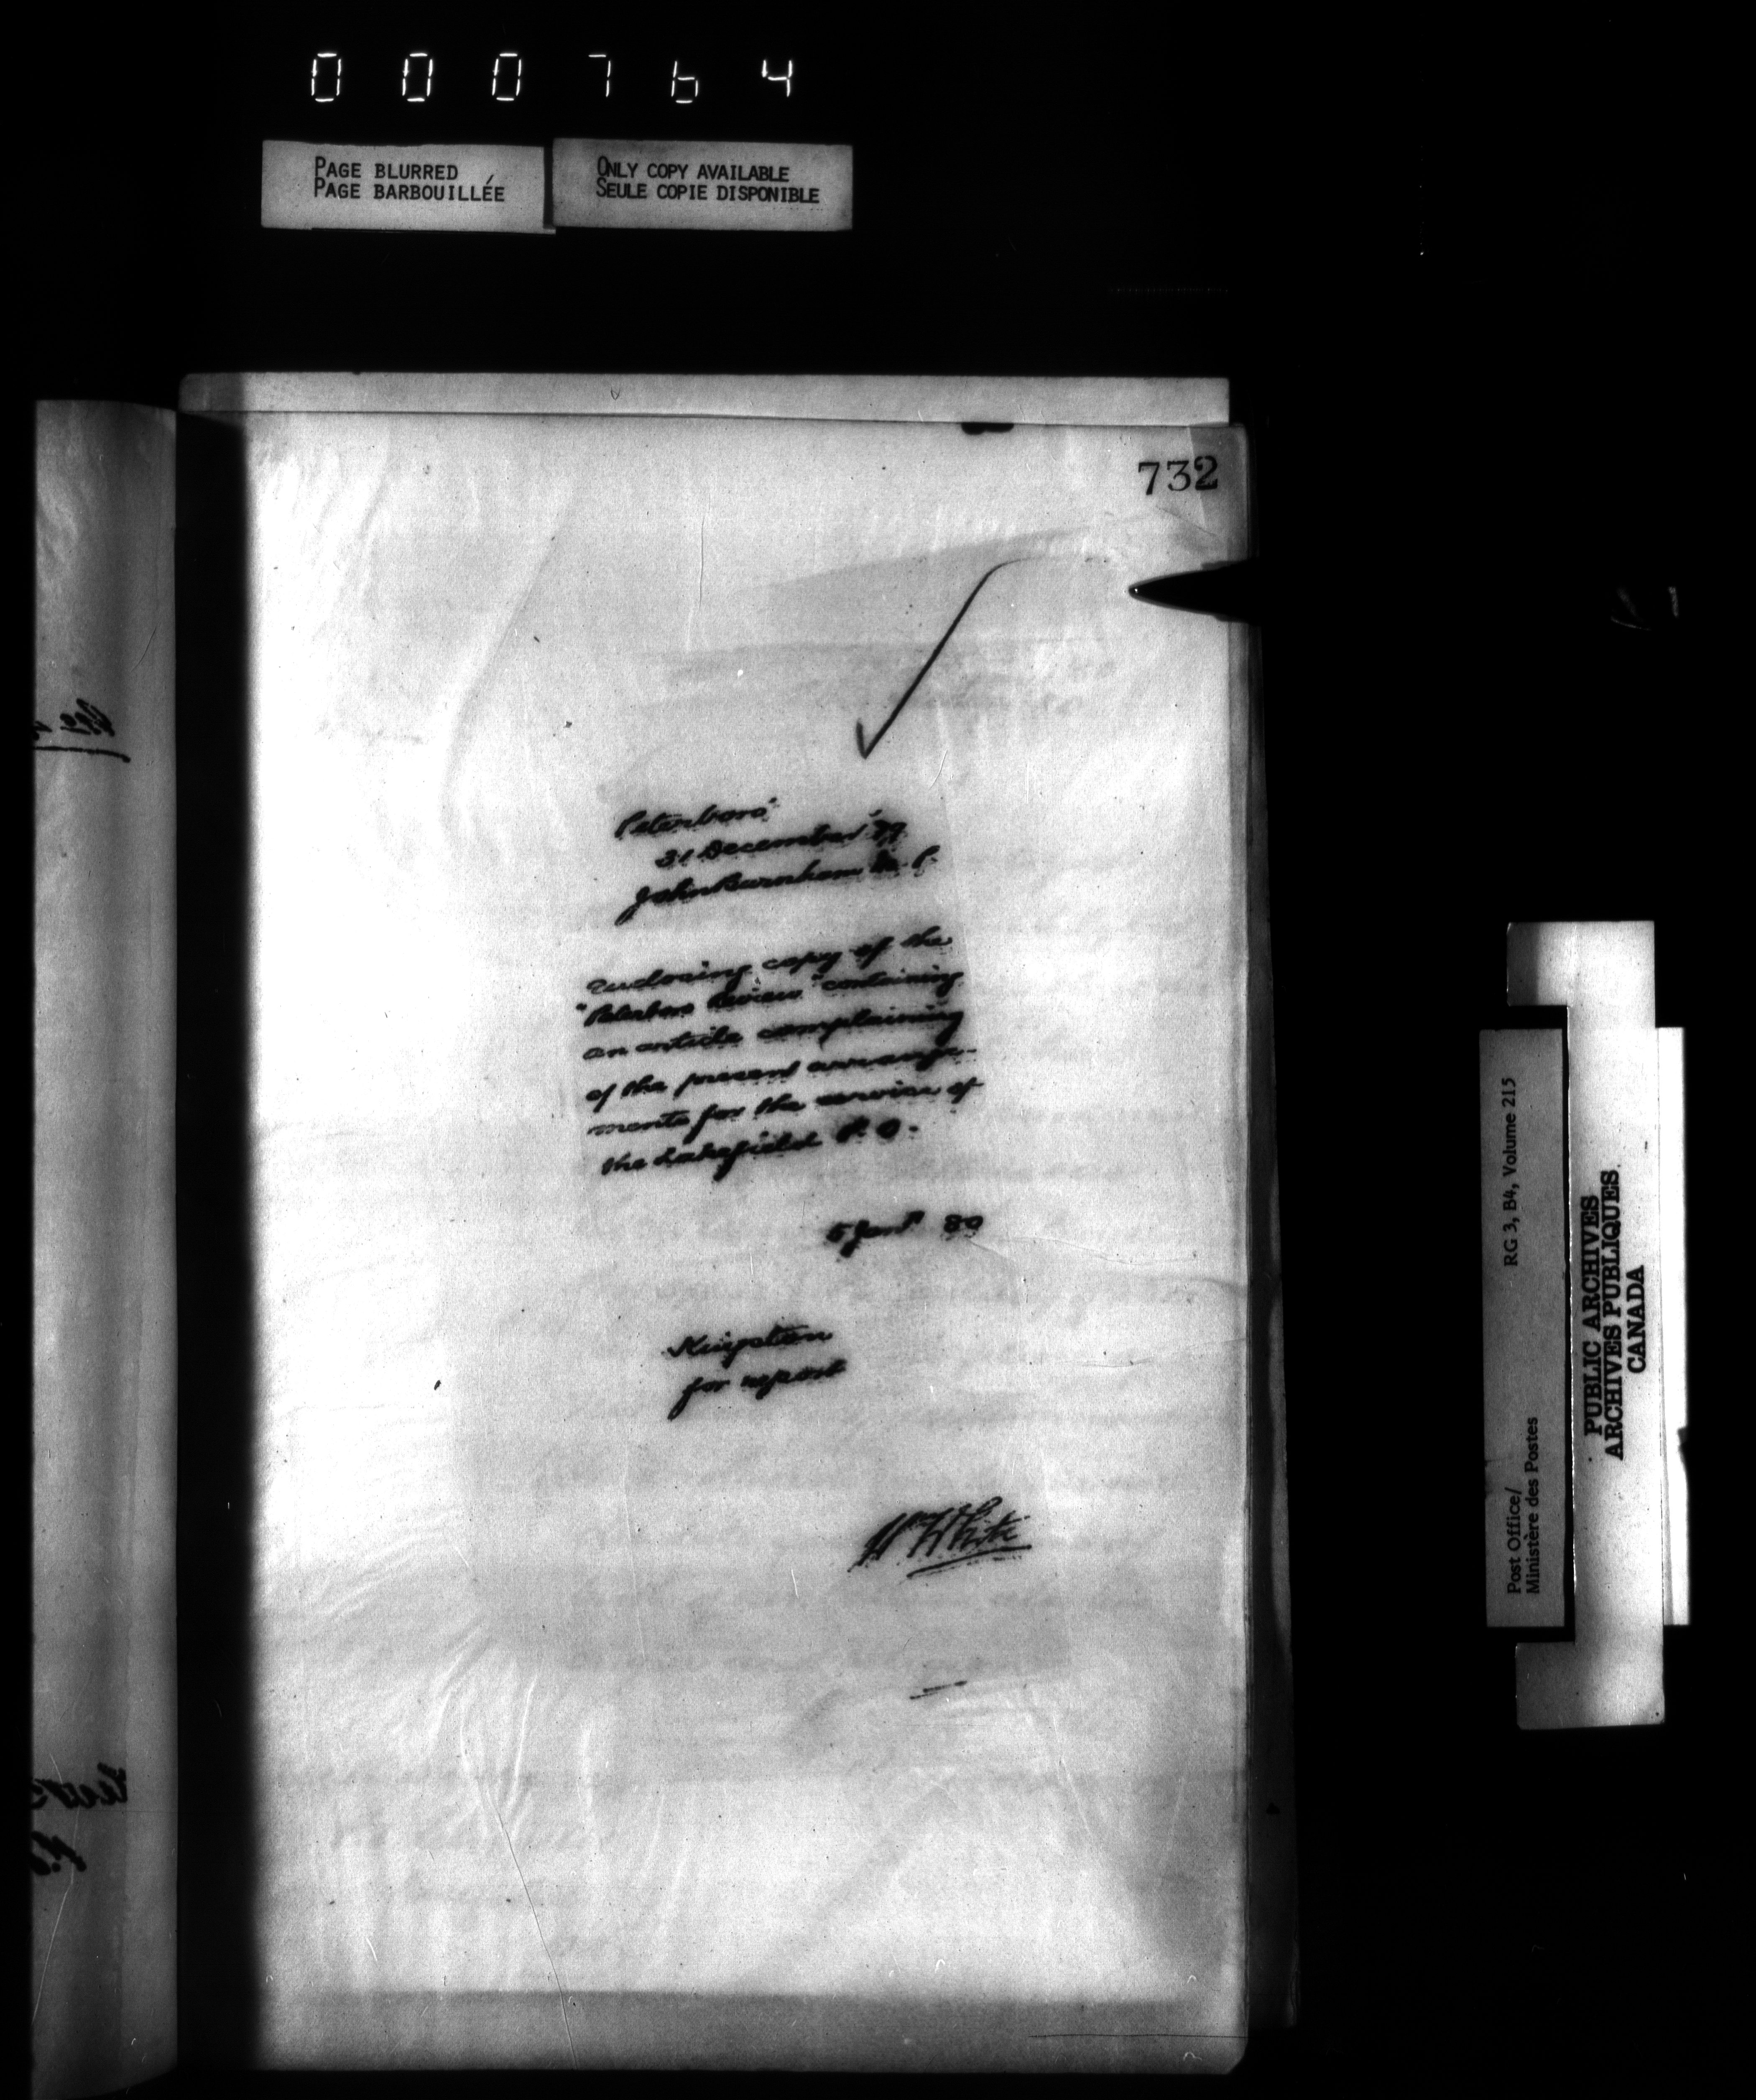 000764
PAGE BLURRED
PAGE BARBOUILLÉE
ONLY COPY AVAILABLE
SEULE COPIE DISPONIBLE
732
Peterboro'
31 December '79
John Burnham M.P.
Enclosing copy of the
"Peterboro Review" containing
an article complaining
of the present arrange-
ments for the service of
the Lakefield P.O.
5 Jany 80
Kingston
for report
W White
Post Office/
Ministère des Postes
RG 3, B4, Volume 215
PUBLIC ARCHIVES
ARCHIVES PUBLIQUES
CANADA